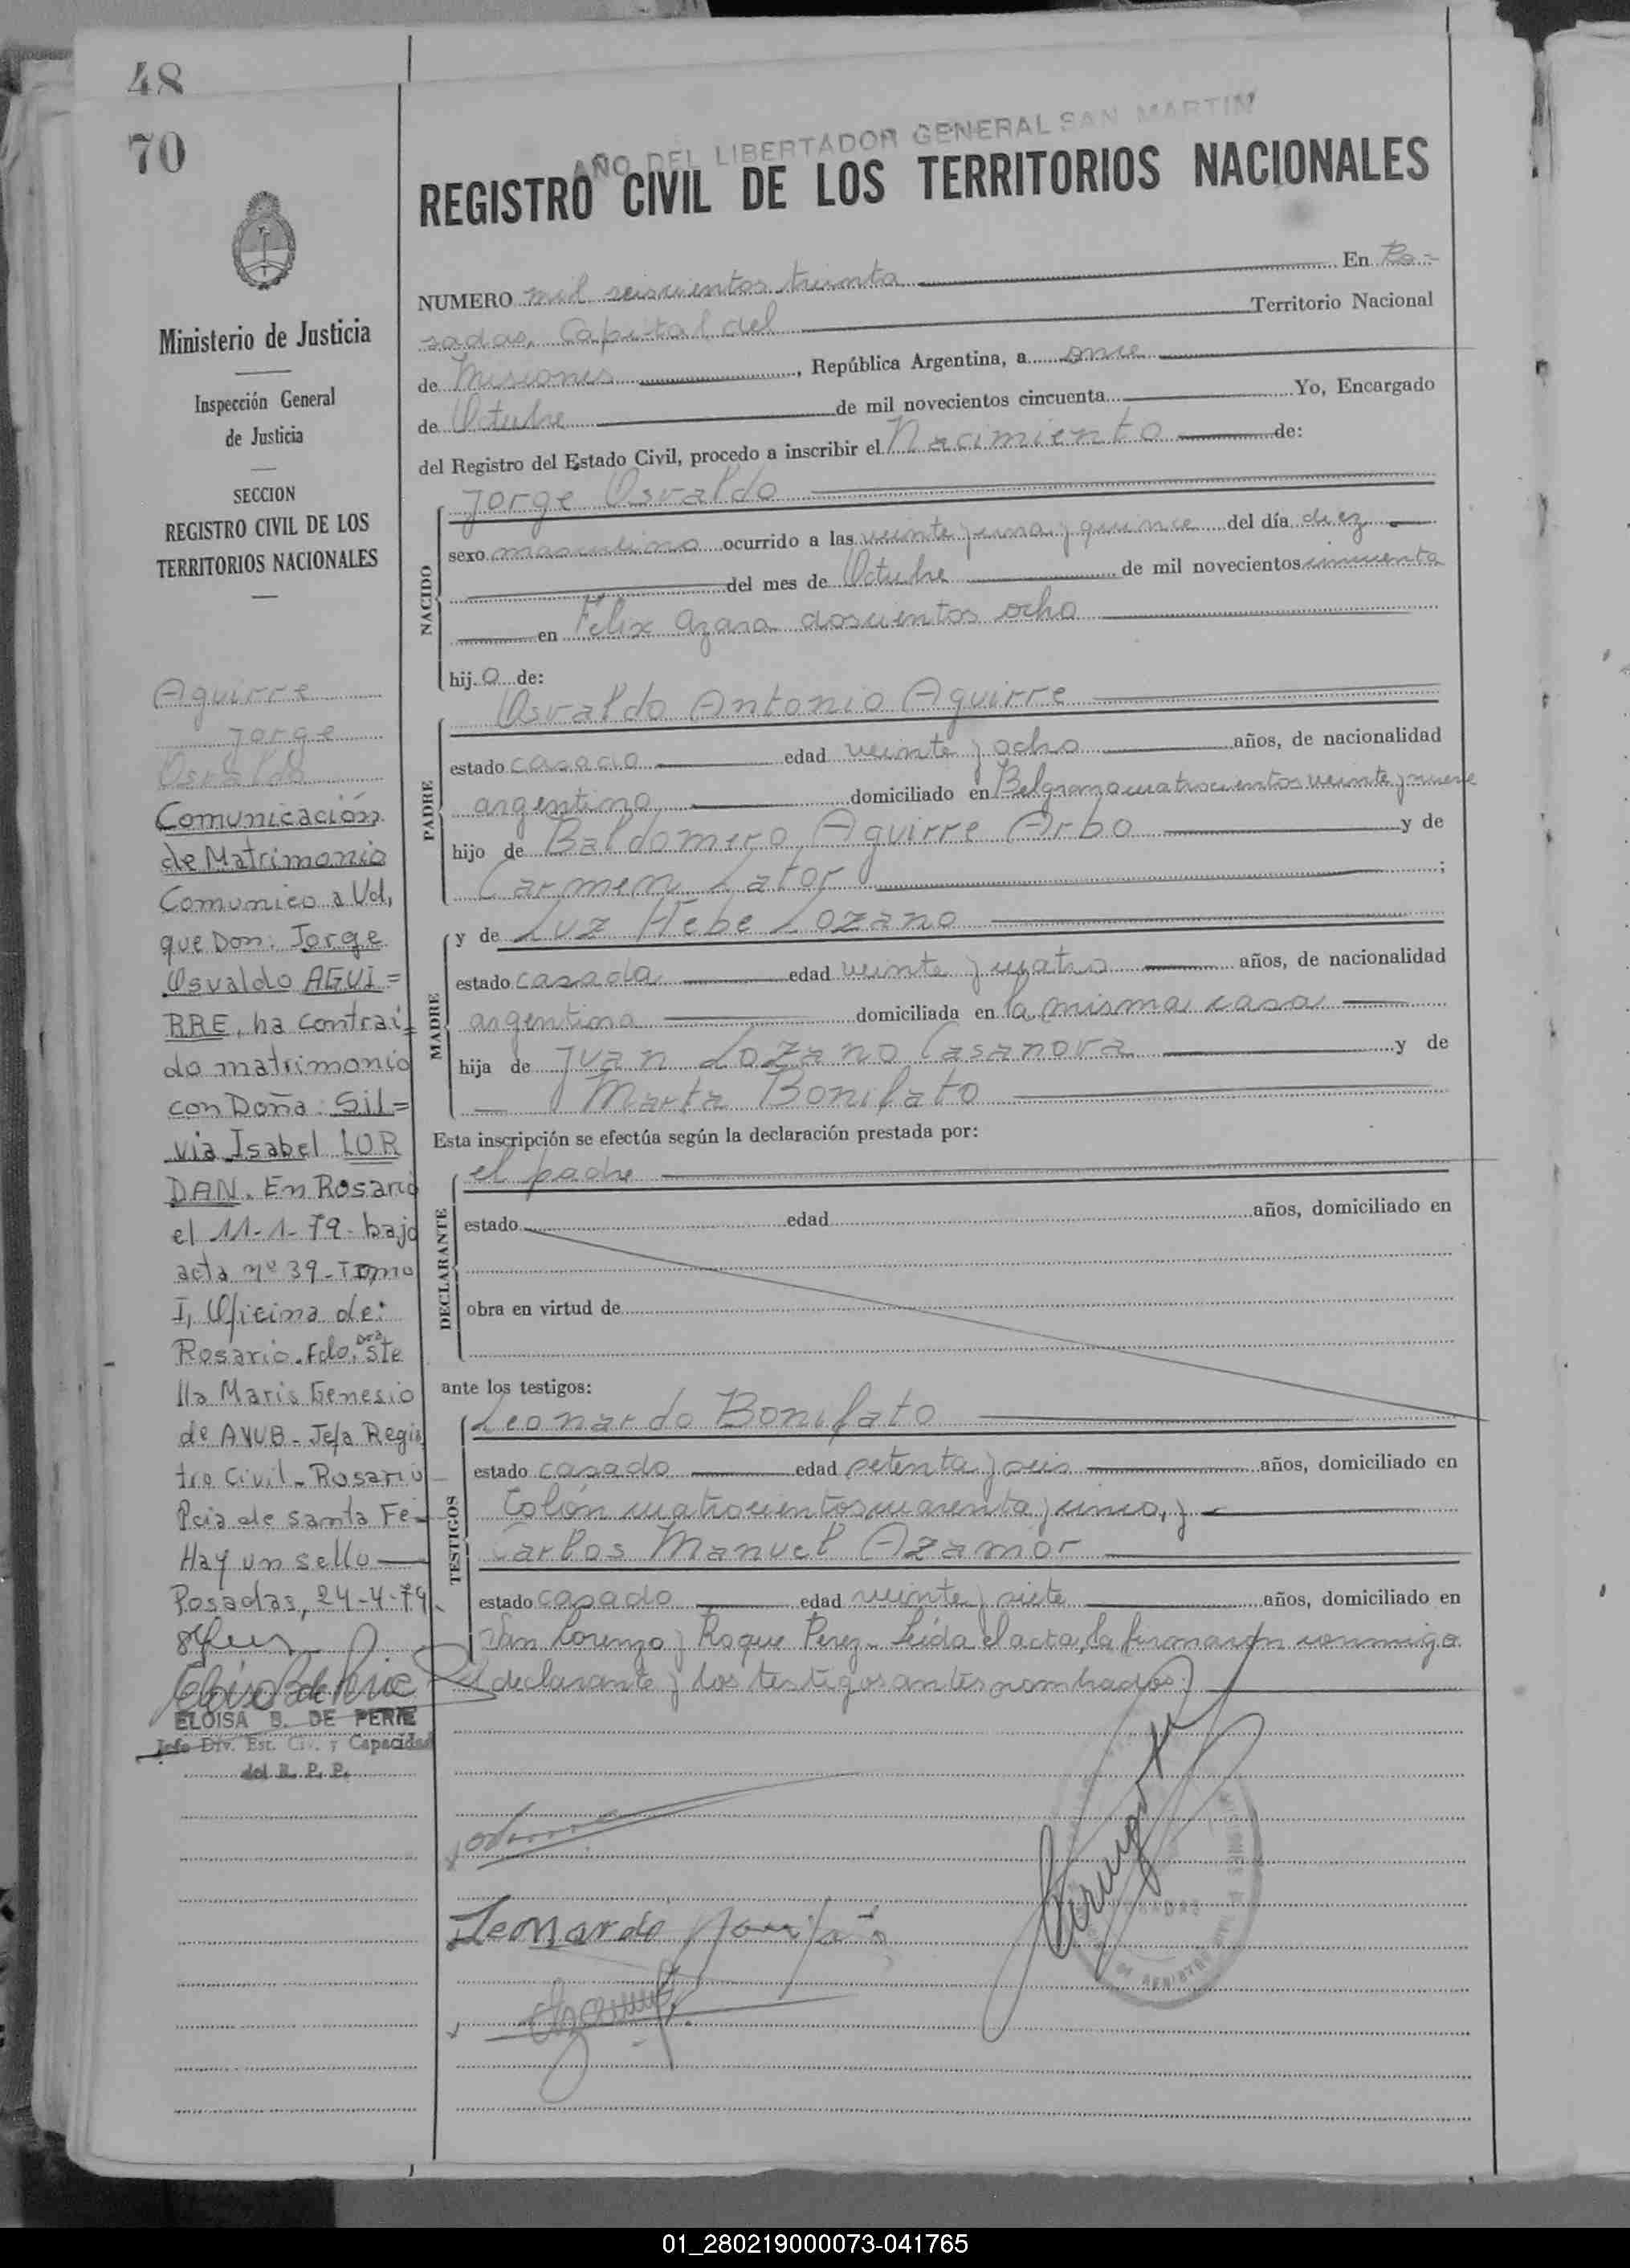 48
70
Ministerio de Justicia
Inspección General
de Justicia
SECCION
REGISTRO CIVIL DE LOS
TERRITORIOS NACIONALES
Aguirre
Jorge
Osvaldo
Comunicación
de Matrimonio
Comunico a Ud,
que Don: Jorge
Osvaldo AGUI=
RRE, ha contrai=
do matrimonio
con Doña: Sil=
via Isabel LOR
DAN. En Rosario
el 11-1-79- bajo
acta nº 39-Tomo
I, Oficina de:
Rosario. Fdo. Dra Ste
lla Maris Genesio
de AVUB - Jefa Regis
tro Civil - Rosario
Pcia de Santa Fé-
Hay un sello
Posadas, 24-4-79.
ELOISA B. DE PERIE
Jefe Div. Est. Civ. y Capacidad
del R. P. P.
AÑO DEL LIBERTADOR GENERAL SAN MARTIN
REGISTRO CIVIL DE LOS TERRITORIOS NACIONALES
NUMERO mil seiscientos treinta En Po-
sadas, Capital del Territorio Nacional
de Misiones, República Argentina, a once
de Octubre de mil novecientos cincuenta Yo, Encargado
del Registro del Estado Civil, procedo a inscribir el Nacimiento de:
NACIDO
Jorge Osvaldo
sexo masculino ocurrido a las veinte y una y quince del día diez
del mes de Octubre de mil novecientos cincuenta
en Félix Azara doscientos ocho
hijo de:
PADRE
Osvaldo Antonio Aguirre
estado casado edad veinte y ocho años, de nacionalidad
argentino domiciliado en Belgrano cuatrocientos veinte y nueve
hijo de Baldomero Aguirre Arbo y de
Carmen Lator;
MADRE
y de Luz Hebe Lozano
estado casada edad veinte y cuatro años, de nacionalidad
argentina domiciliada en la misma casa
hija de Juan Lozano Casanova y de
Marta Bonifato
Esta inscripción se efectúa según la declaración prestada por:
DECLARANTE
el padre
estado edad años, domiciliado en
obra en virtud de
ante los testigos:
TESTIGOS
Leonardo Bonifato
estado casado edad setenta y seis años, domiciliado en
Colón cuatrocientos cuarenta y cinco, y
Carlos Manuel Azamor
estado casado edad veinte y siete años, domiciliado en
San Lorenzo y Roque Perez. Leída el acta, la firmaron conmigo
el declarante y los testigos antes nombrados.
Leonardo Bonifato
01_280219000073-041765